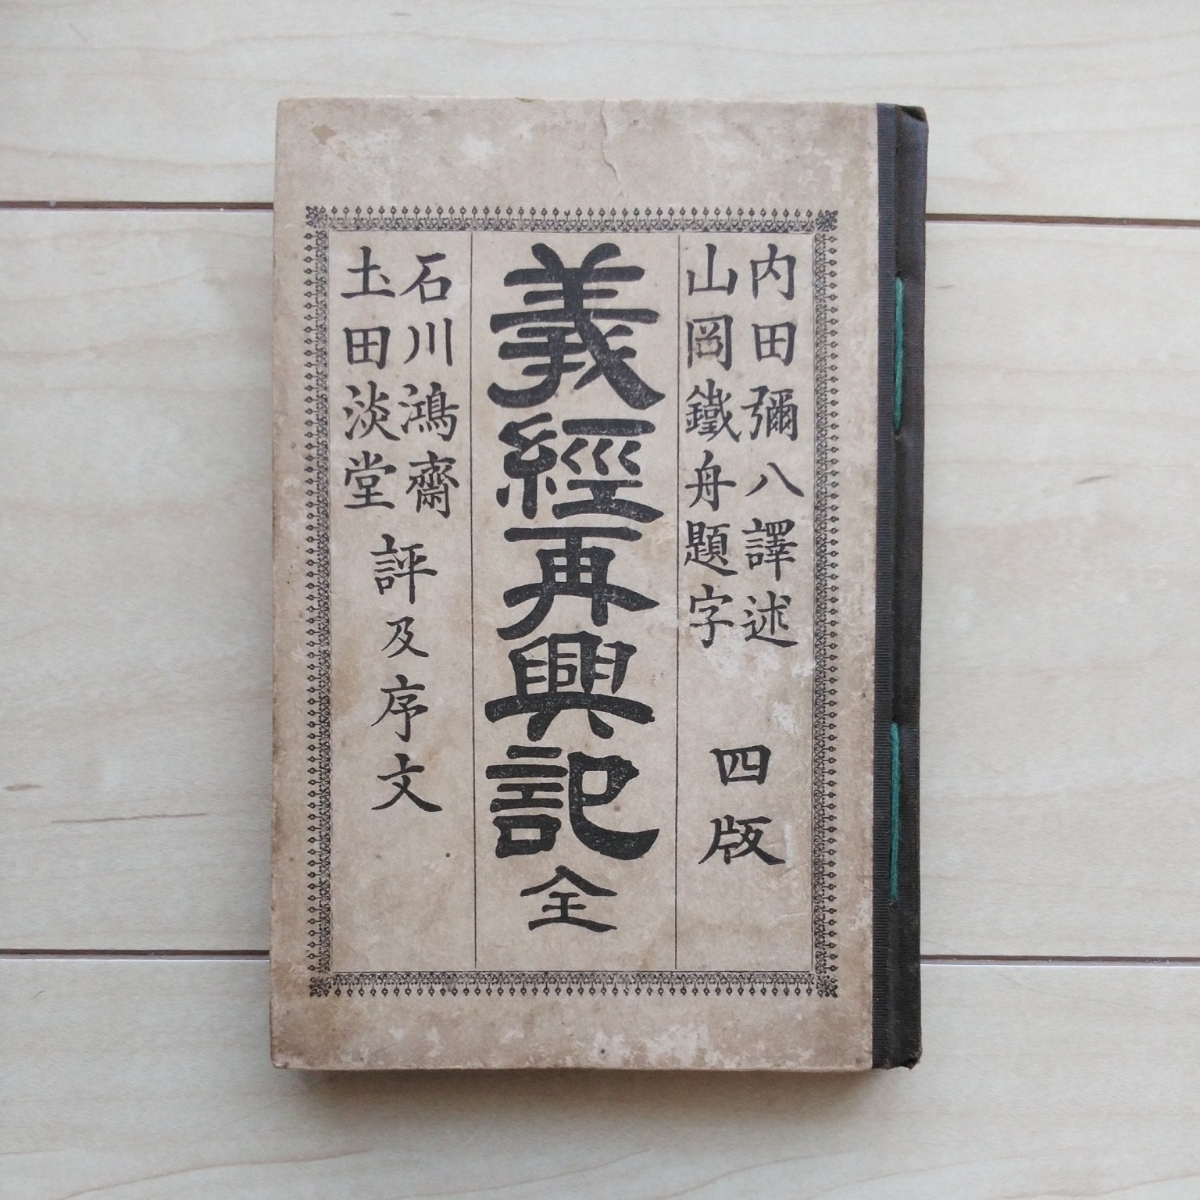 内田彌八譯述
山岡鐵舟題字
四版
義經再興記全
石川鴻齋
圡田淡堂
評及序文